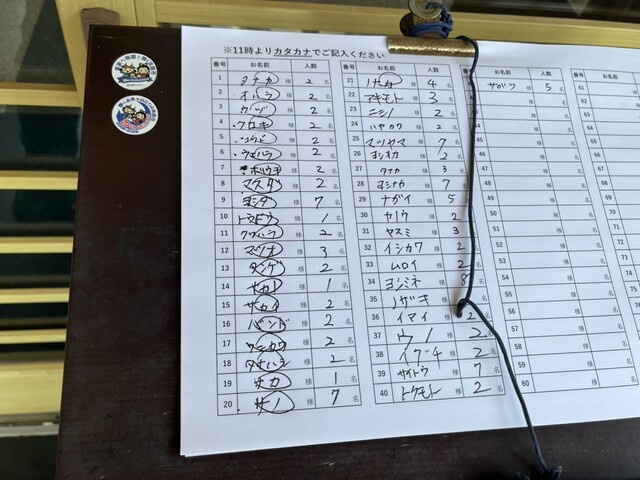 ※11時よりカタカナでご記入ください
番号 お名前 人数
1 タナカ 様 2 名
2 オハラ 様 2 名
3 ウツ 様 2 名
4 クロキ 様 2 名
5 様 2 名
6 ウエハラ 様 2 名
7 ホリウチ 様 2 名
8 マスダ 様 2 名
9 ヨシダ 様 7 名
10 様 1 名
11 様 2 名
12 マツオ 様 3 名
13 タンゲ 様 2 名
14 様 1 名
15 サカイ 様 2 名
16 バンド 様 2 名
17 様 2 名
18 タカハシ 様 2 名
19 オカ 様 1 名
20 サノ 様 7 名
番号 お名前 人数
21 ノナカ 様 4 名
22 アキモト 様 3 名
23 ニシノ 様 2 名
24 ハヤカワ 様 2 名
25 マツヤマ 様 7 名
26 ヨシオカ 様 2 名
27 タナカ 様 3 名
28 ヨシナカ 様 7 名
29 ナガイ 様 5 名
30 ヤノウ 様 2 名
31 ヤスミ 様 3 名
32 イシカワ 様 2 名
33 ムロイ 様 2 名
34 ヨシミネ 様 8 名
35 ノザキ 様 名
36 イマイ 様 2 名
37 ウノ 様 2 名
38 イグチ 様 2 名
39 サイトウ 様 7 名
40 トクモト 様 2 名
番号 お名前 人数
様 5 名
44 様 名
45 様 名
46 様 名
47 様 名
48 様 名
49 様 名
50 様 名
51 様 名
52 様 名
53 様 名
54 様 名
55 様 名
56 様 名
57 様 名
58 様 名
59 様 名
60 様 名
番号
61
62
63
64
65
66
67
68
69
70
71
72
73
74
75
76
77
78
79
80